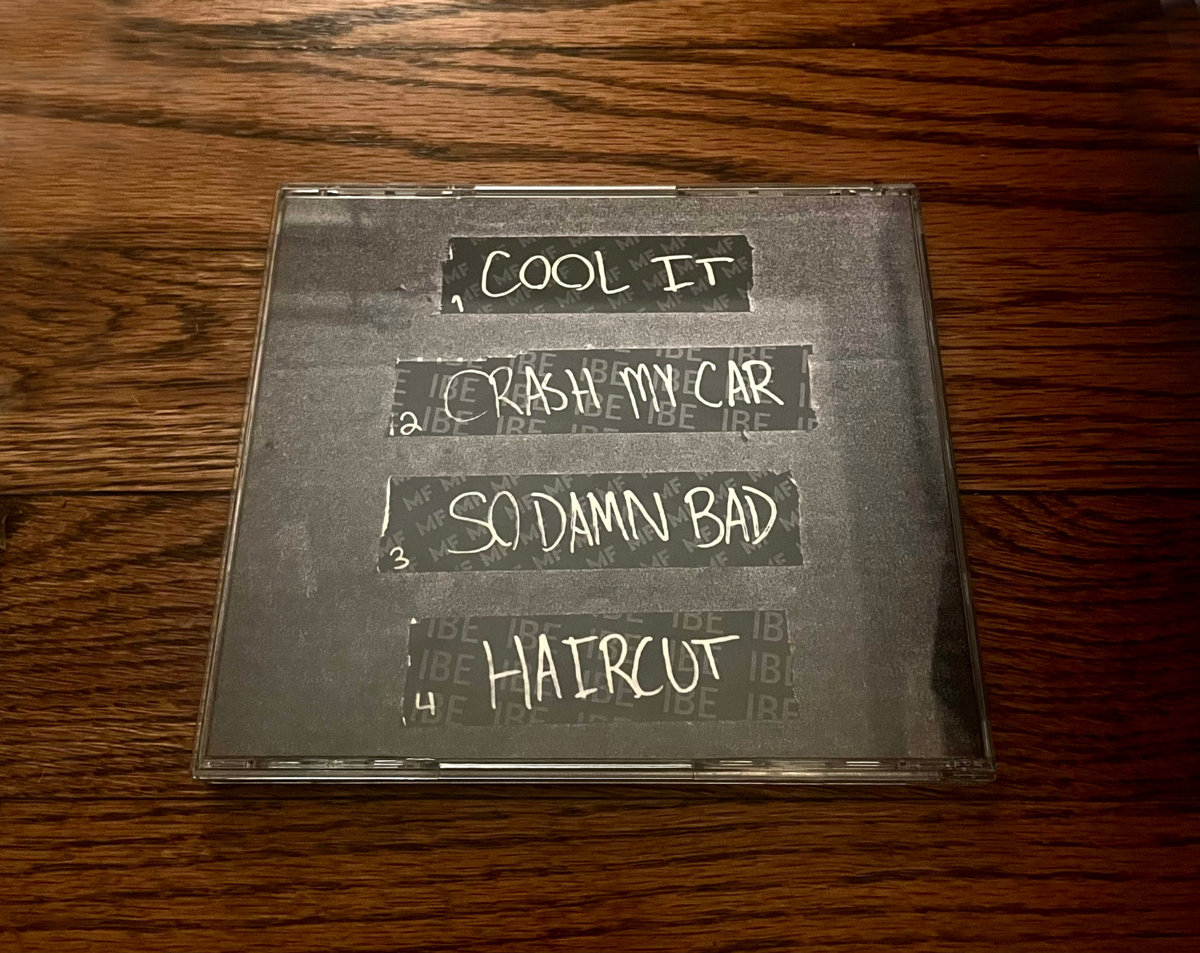 1 COOL IT
2 CRASH MY CAR
3 SO DAMN BAD
4 HAIRCUT